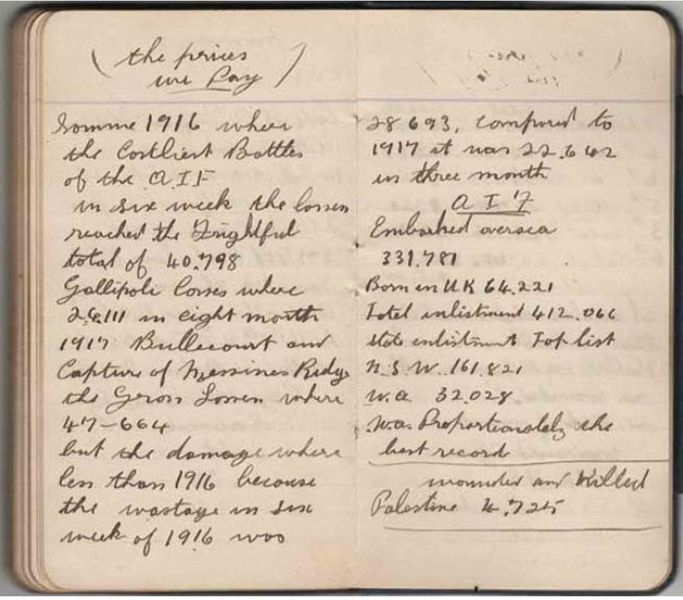 (the prices
we Pay)
Somme 1916 where
the Costliest Battles
of the A.I.F
in six week the losses
reached the Frightful
total of 40.798
Gallipoli losses where
in eight month
1917 Bullecourt and
Capture of Messines Ridge
the Gross Losses where
47-664
but the damage where
less than 1916 because
the wastage in six
week of 1916 was
28693, compared to
1917 it was 22.642
in three month
A I F
Embarked oversea
331.781
Born in UK 64.221
Total enlistment 412.066
State enlistment Top list
N.S.W. 161.821
W.A 32.028
W.A. Proportionately the
best record
wounded and Killed
Palestine 4.725